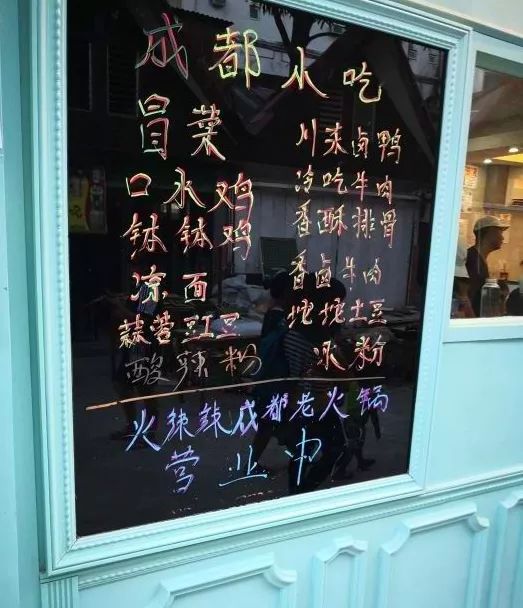 成都小吃
冒菜
口水鸡
钵钵鸡
凉面
蒜蓉豇豆
酸辣粉
川味卤鸭
冷吃牛肉
香酥排骨
香卤牛肉
坨坨土豆
冰粉
火辣辣成都老火锅
营业中